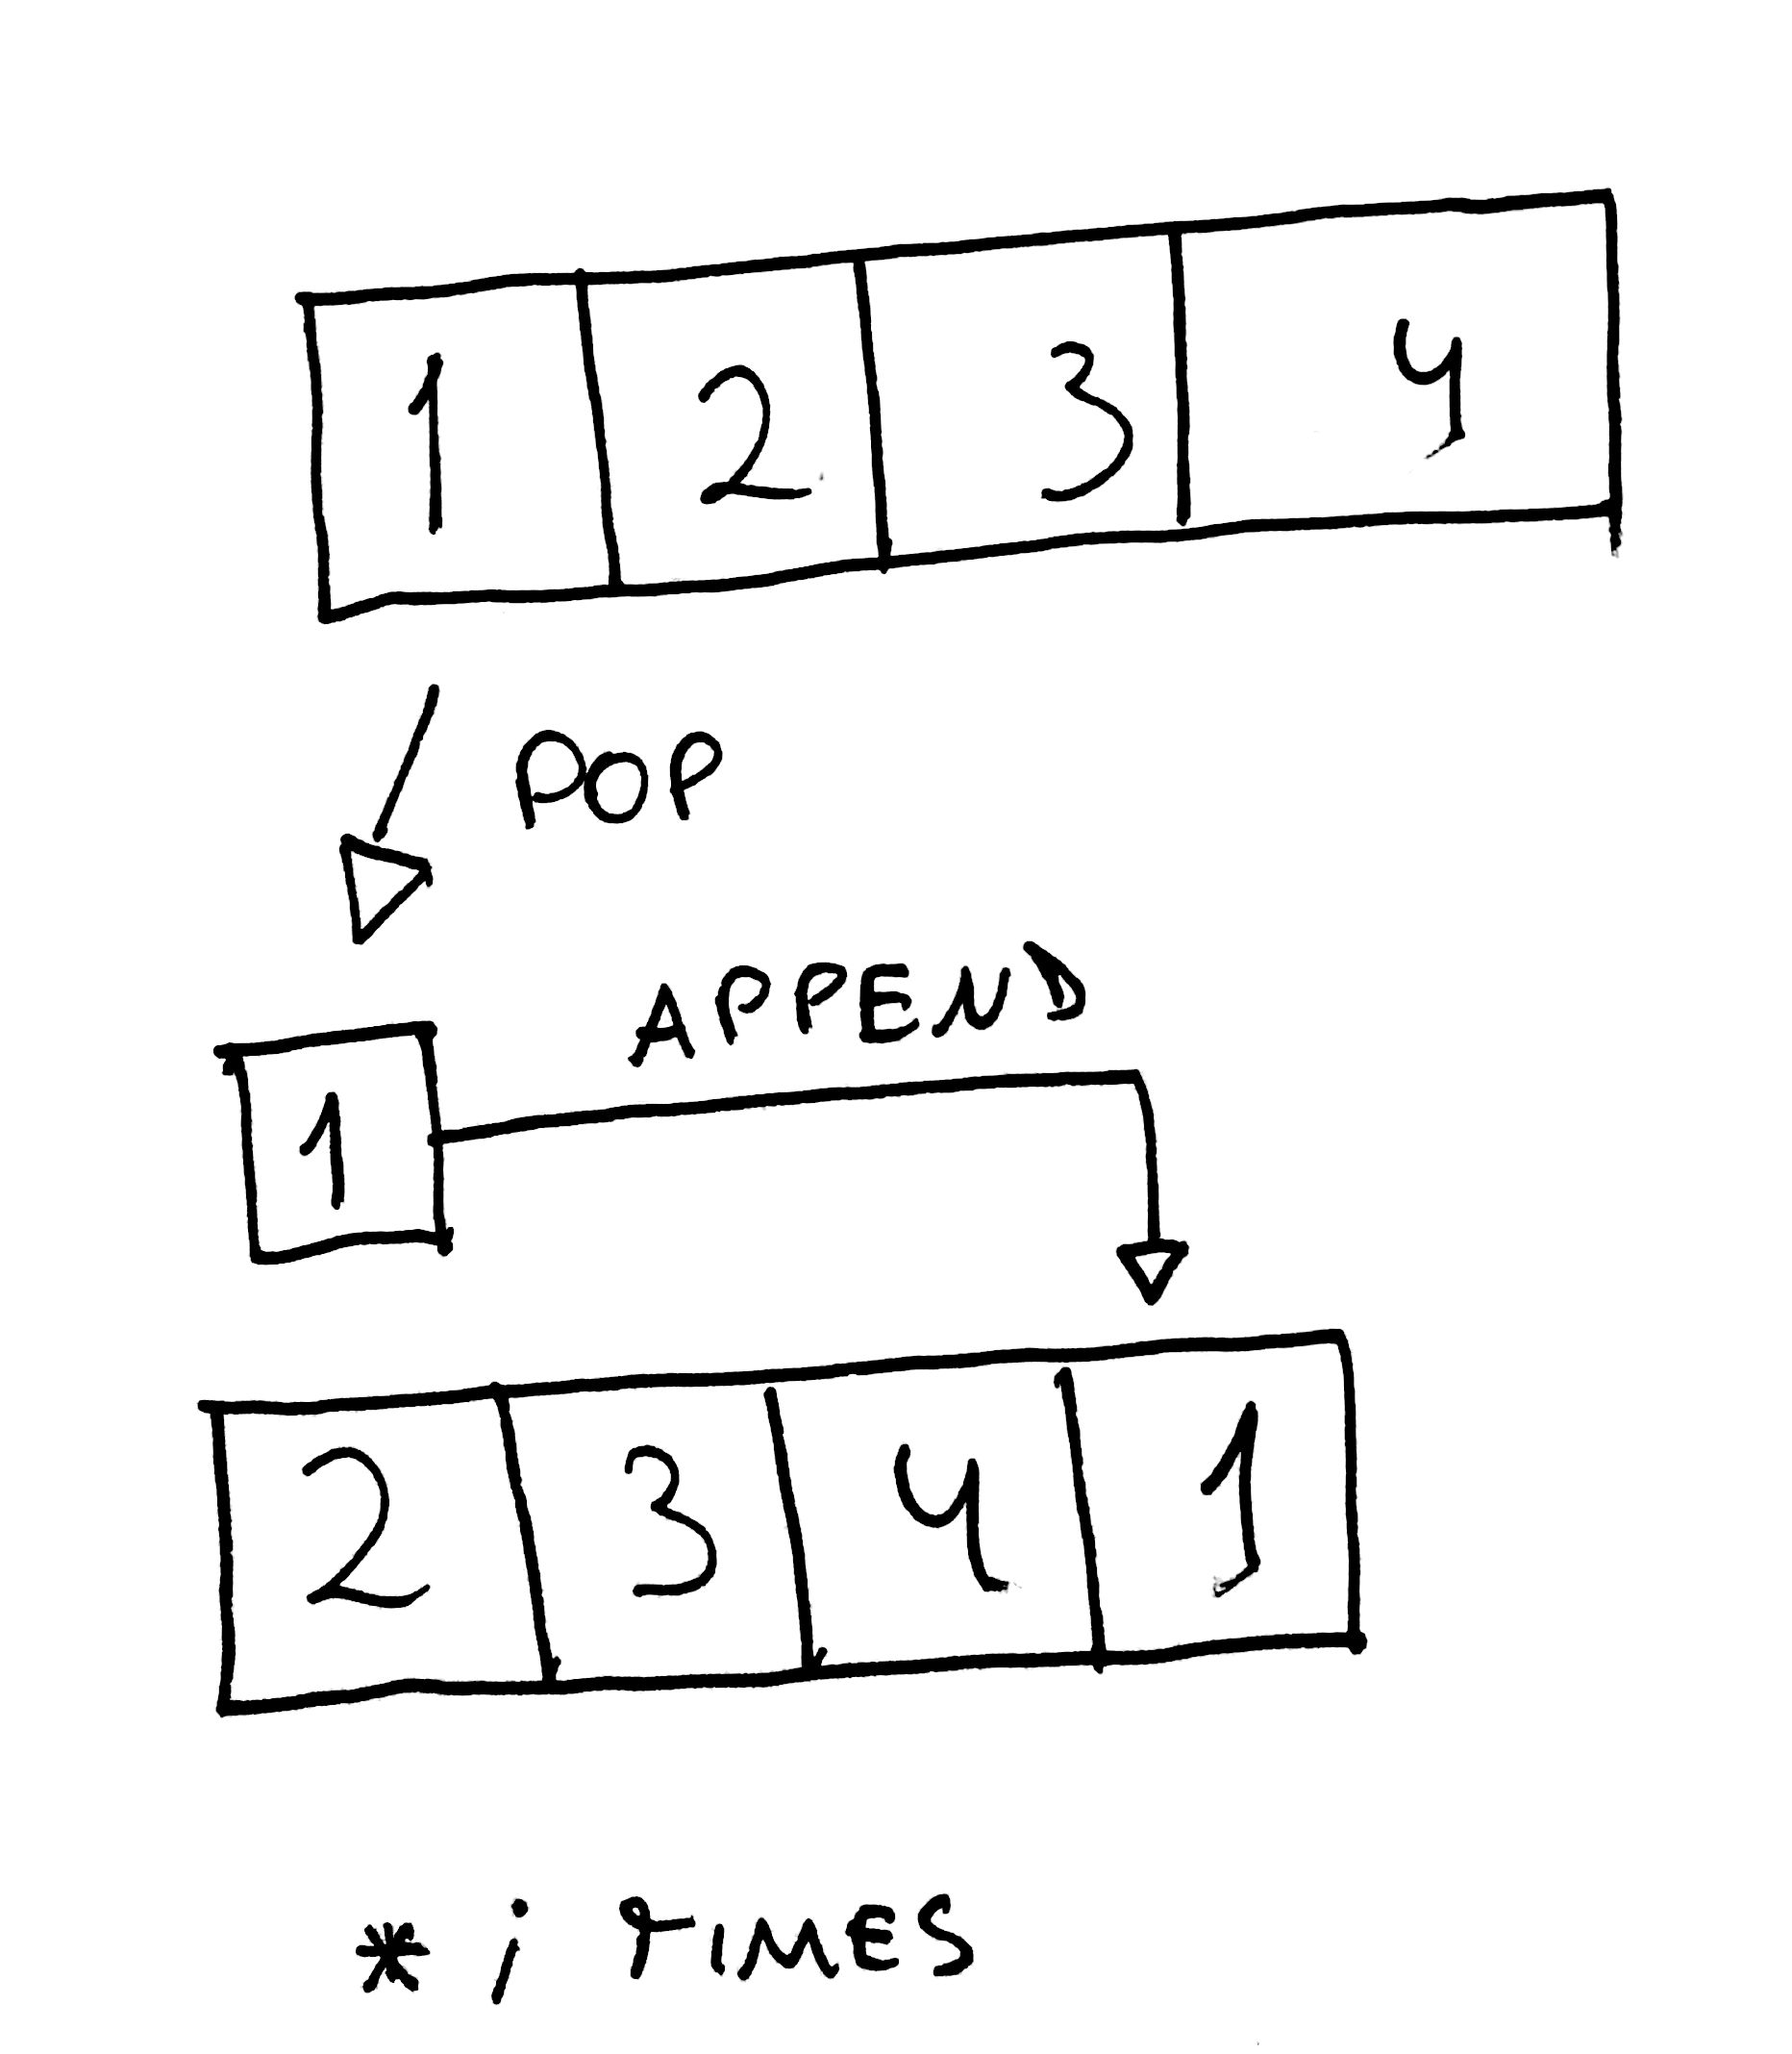 1 2 3 4
POP
APPEND
1
2 3 4 1
* i TIMES